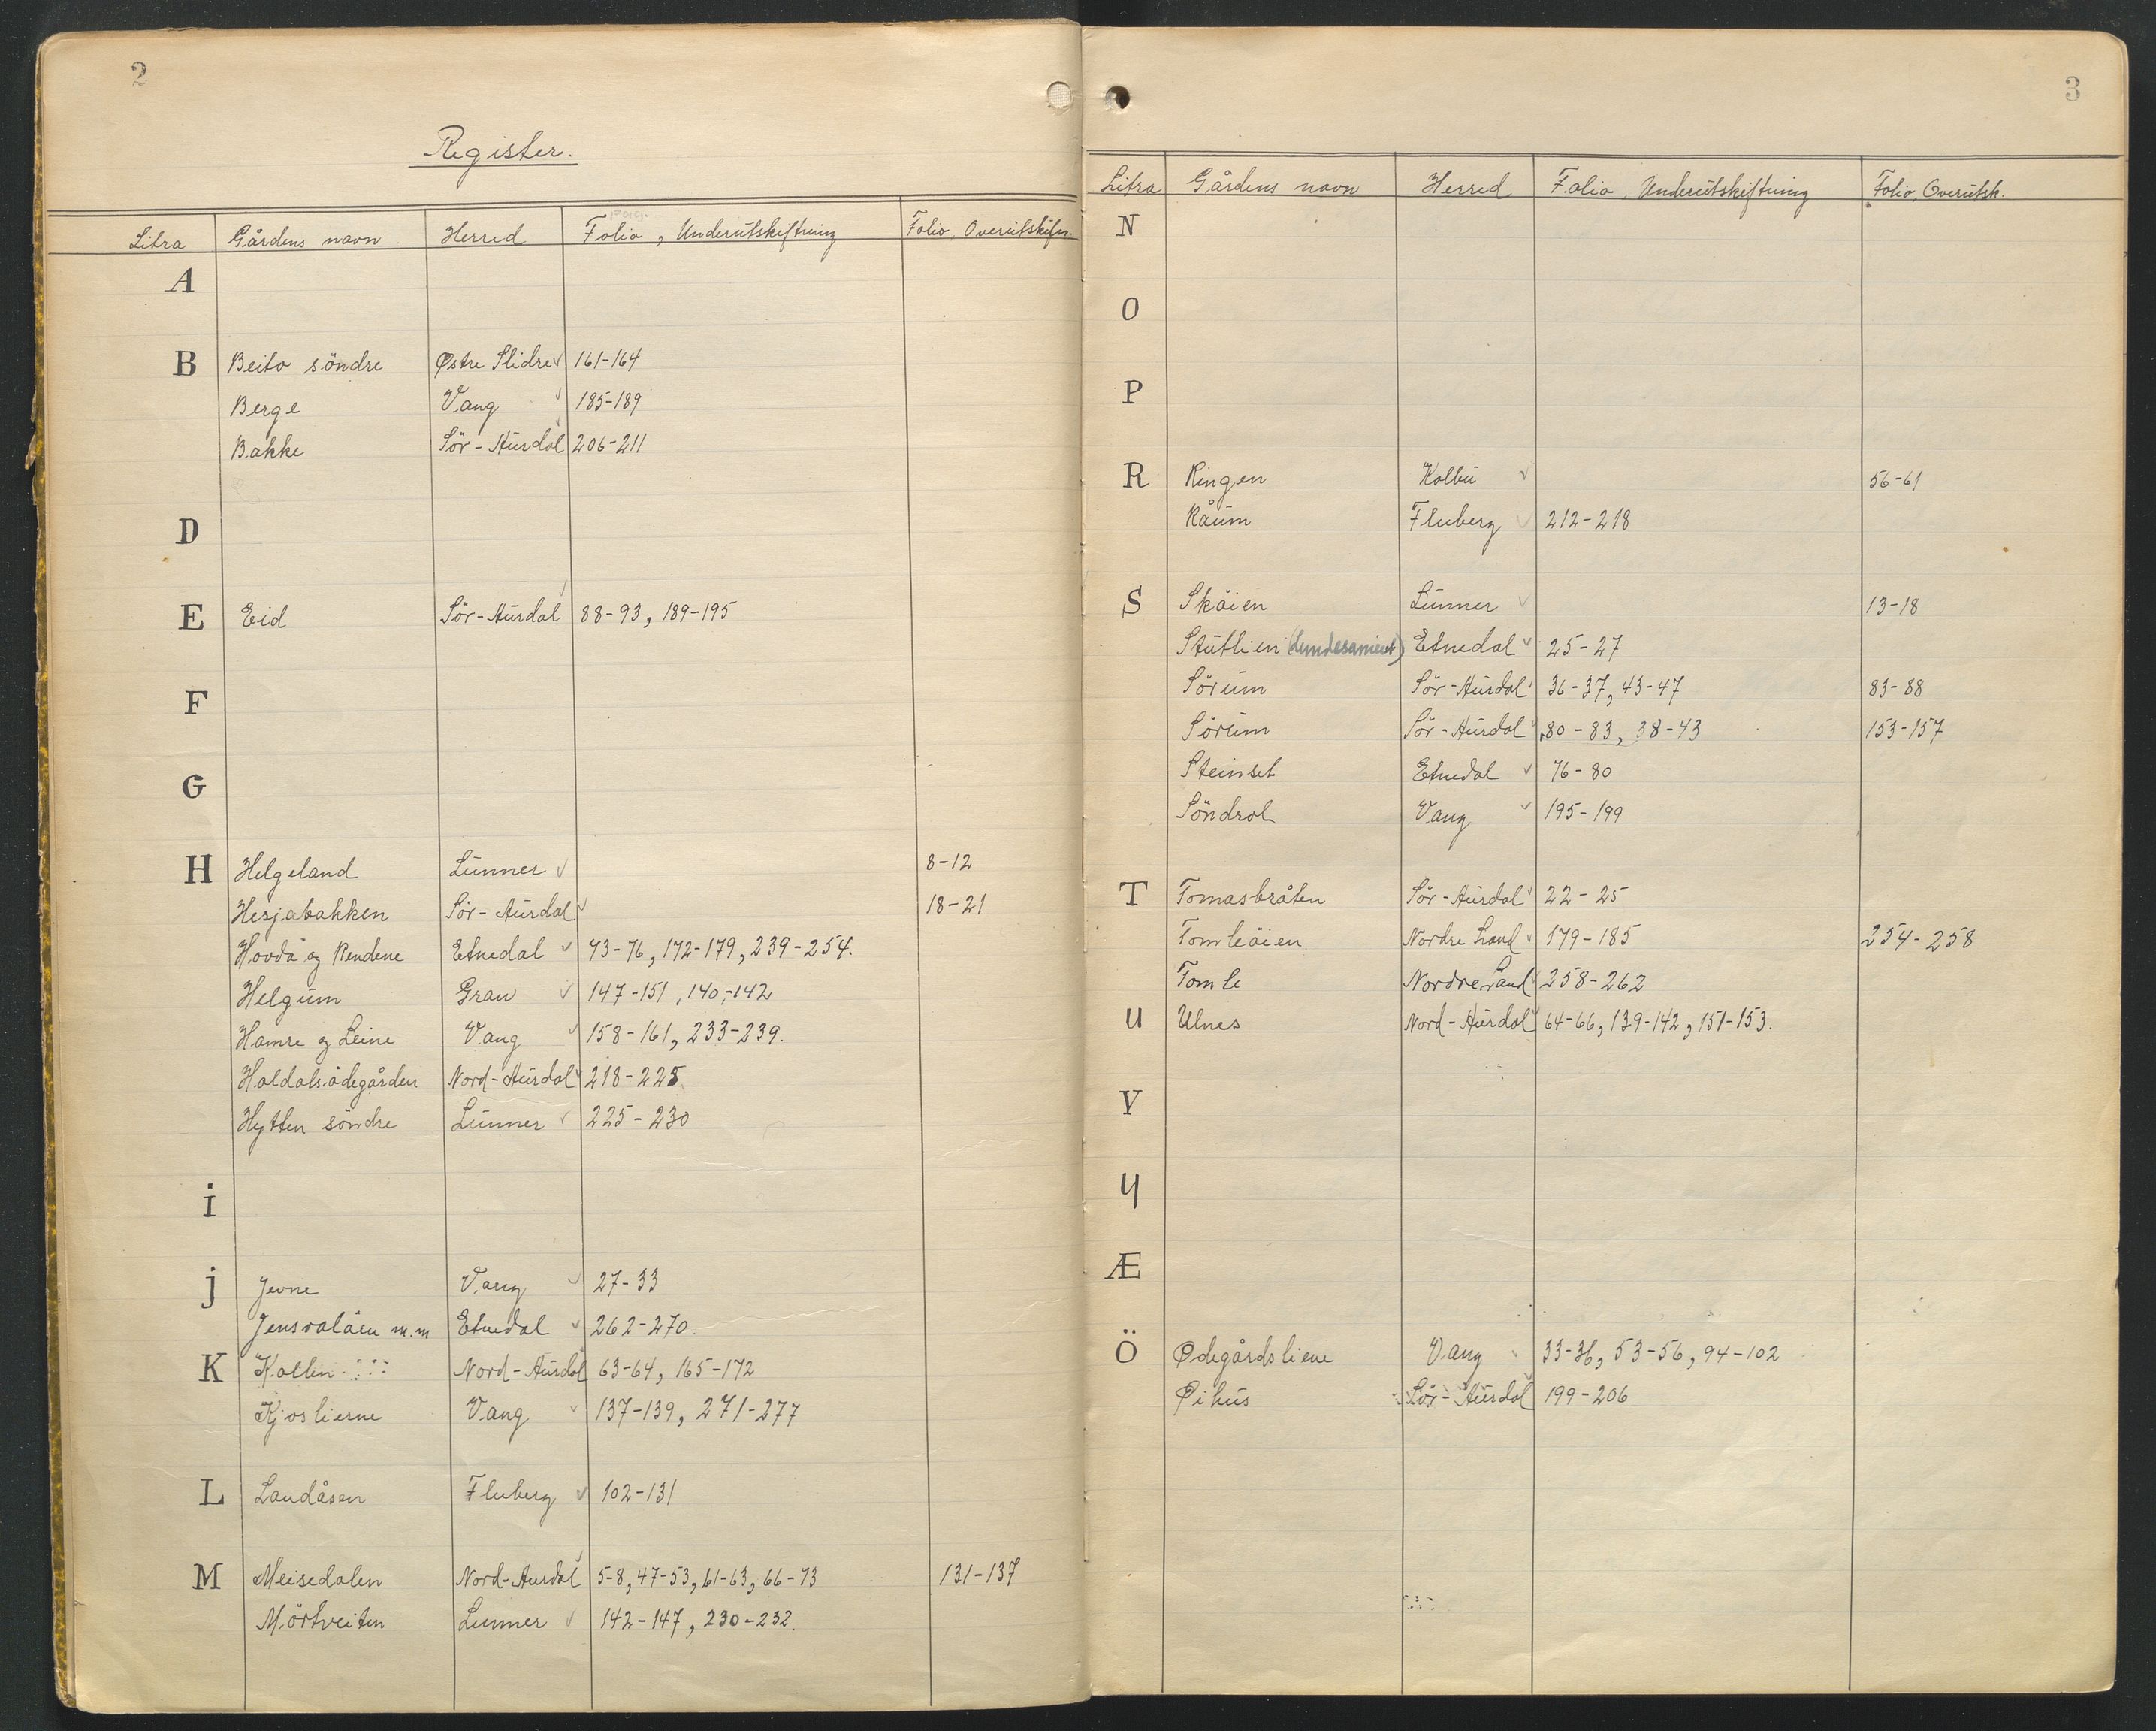 2
Register.
Litra Gårdens navn Herred Folio, Underutskiftning Folio, Overutskiftn.
A
B Beito söndre Østre Slidre √ 161-164
Berge Vang √ 185-189
Bakke Sör-Aurdal √ 206-211
D
E Eid Sör-Aurdal √ 88-93, 189-195
F
G
H Helgeland Lunner √ 8-12
Hesjabakken Sör-Aurdal √ 18-21
Hovda og Rendene Etnedal √ 73-76, 172-179, 239-254.
Helgum Gran √ 147-151, 140-142
Hamre og Leine Vang √ 158-161, 233-239.
Haldalsödegården Nord-Aurdal √ 218-225
Hytten söndre Lunner √ 225-230
i
j Jevne Vang √ 27-33
Jensvalåen m.m Etnedal √ 262-270.
K Kollin Nord-Aurdal 63-64, 165-172
Kjoslierne Vang √ 137-139, 271-277
L Landåsen Fluberg √ 102-131
M Meisedalen Nord-Aurdal √ 5-8, 47-53, 61-63, 66-73 131-137
Mörtveiten Lunner √ 142-147, 230-232.
3
Litra Gårdens navn Herred Folio, Underutskiftning Folio, Overutsk.
N
O
P
R Ringen Kolbu √ 56-61
Råum Fluberg √ 212-218
S Sköien Lunner √ 13-18
Stutlien Etnedal √ 25-27
Sörum Sör-Aurdal √ 36-37, 43-47 83-88
Sörum Sör-Aurdal √ 80-83, 38-43 153-157
Steinset Etnedal √ 76-80
Söndrol Vang √ 195-199
T Tomasbråten Sör-Aurdal √ 22-25
Tomleöien Nordre Land √ 179-185 254-258
Tomle Nordre Land √ 258-262
U Ulnes Nord-Aurdal √ 64-66, 139-142, 151-153.
V
Y
Æ
Ö Ødegårdsliene Vang √ 33-36, 53-56, 94-102
Øihus Sör-Aurdal √ 199-206